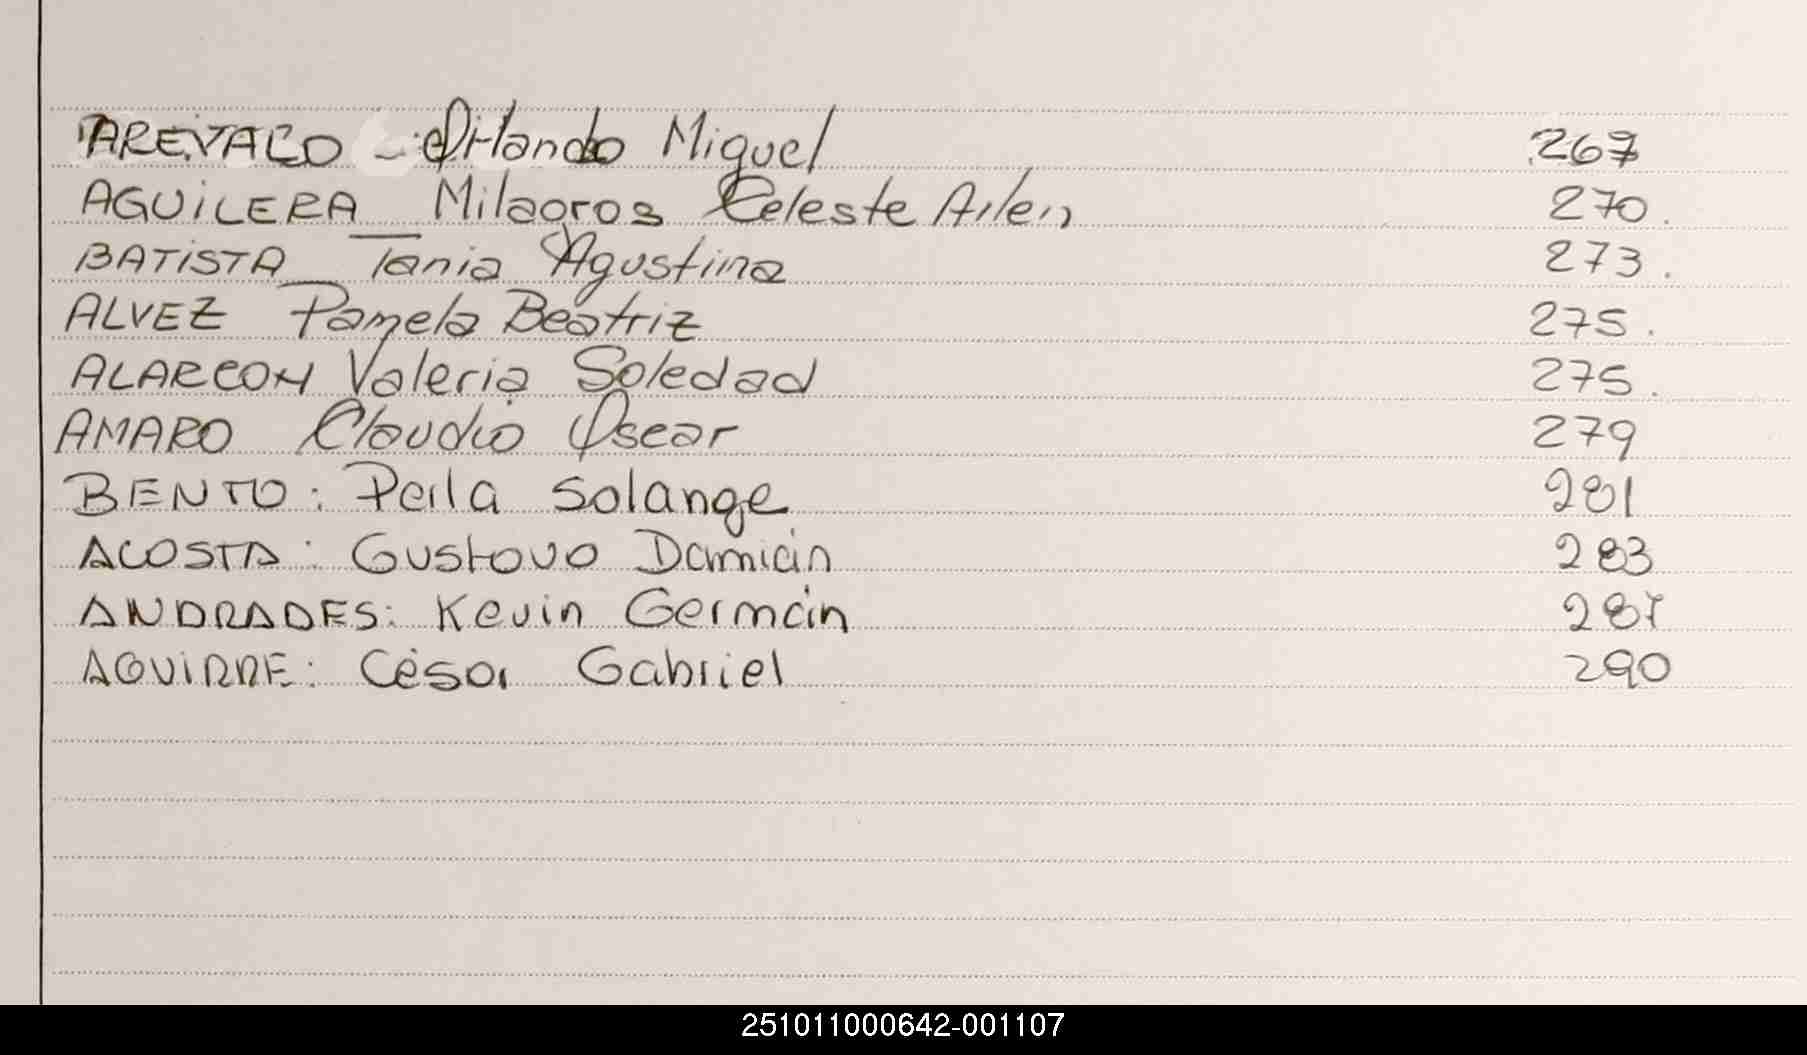 AREVALO - Orlando Miguel 267
AGUiLERA Milagros Celeste Ailen 270.
BATiSTA Tania Agustina 273.
ALVEZ Pamela Beatriz 275.
ALARCON Valeria Soledad 275.
AMARO Claudio Oscar 279
BENTO: Perla Solange 281
ACOSTA: Gustavo Damián 283
ANDRADES: Kevin Germán 287
AGUiRRE: César Gabriel 290
251011000642-001107